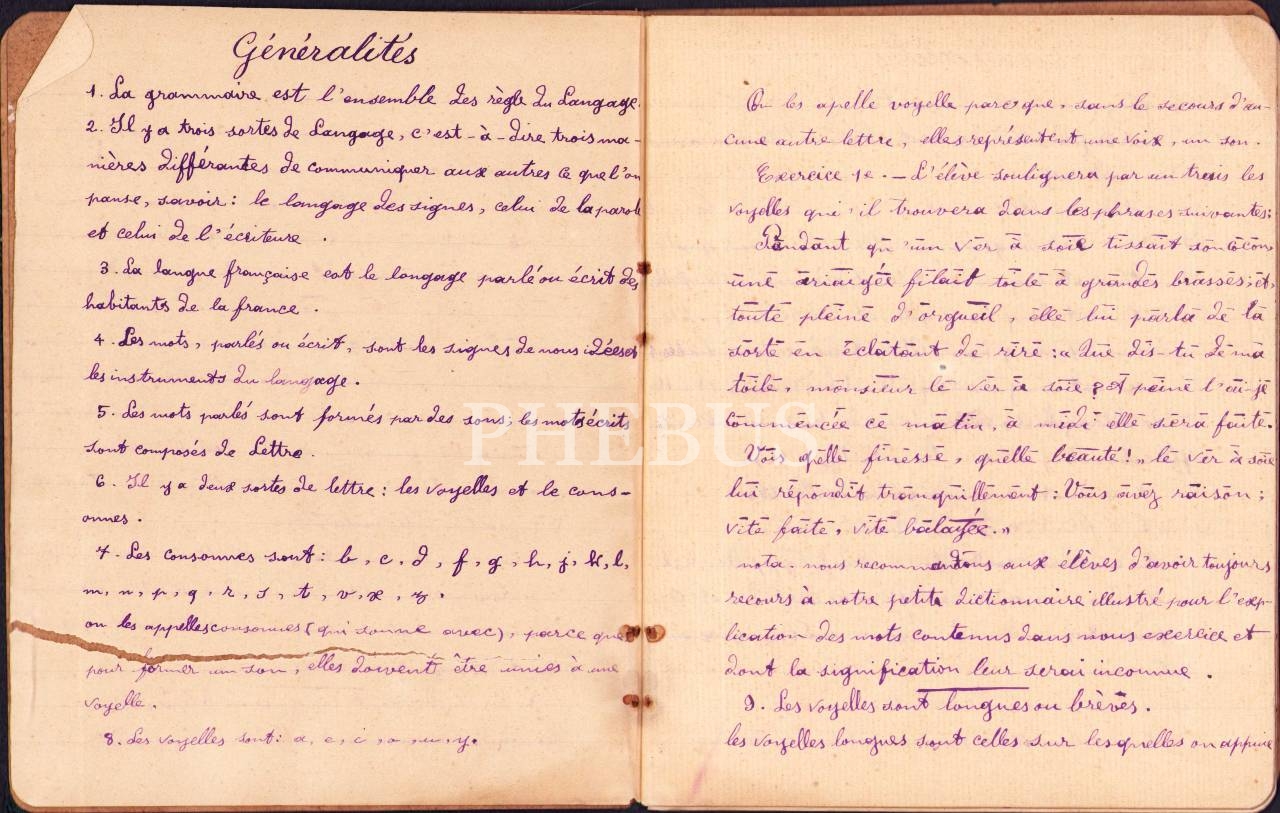 Généralités
1. La grammaire est l'ensemble des règle du Langage.
2. Il y a trois sortes de Langage, c'est-à-dire trois ma-
nières différantes de communiquer aux autres ce que l'on
panse, savoir: le langage des signes, celui de la parole
et celui de l'écriteure.
3. La langue française est le longage parlé ou écrit des
habitants de la france.
4. Les mots, parlés ou écrit, sont les signes de nous idées et
les instruments du langage.
5. Les mots parlés sont formés par des sons; les mots écrits
sont composés de Lettre.
6. Il y a deux sortes de lettre: les voyelles et le cons-
onnes.
7. Les consonnes sont: b, c, d, f, g, h, j, k, l,
m, n, p, q, r, s, t, v, x, z.
on les appelles consonnes (qui sonne avec), parce que
pour former un son, elles doivent être unies à une
voyelle.
8. Les voyelles sont: a, e, i, o, u, y.
On les apelle voyelle parce que, sans le secours d'au-
cune autre lettre, elles représentent une voix, un son.
Exercice 1e. - L'élève soulignera par un treis les
voyelles qui il trouvera dans les phrases suivantes:
Pendant qu'un ver à soie tissait son cocon
une ariaigée filait toile à grandes brasses; et,
toute pleine d'orgueil, elle lui parla de la
sorte en éclatant de rire: « Que dis-tu de ma
toile, monsieur le ver à soie? A peine l'ai-je
commencée ce matin, à midi elle sera faite.
Vois qelle finesse, quelle beauté! » le ver à soie
lui répondit tranquillement: Vous avez raison;
vite faite, vite balayée. »
nota. nous recommandons aux élèves d'avoir toujours
recours à notre petite dictionnaire illustré pour l'exp-
lication des mots contenus dans nous exercice et
dont la signification leur serai inconnue.
9. Les voyelles sont longues ou brèves.
les voyelles longues sont celles sur lesquelles on appuie
PHEBUS